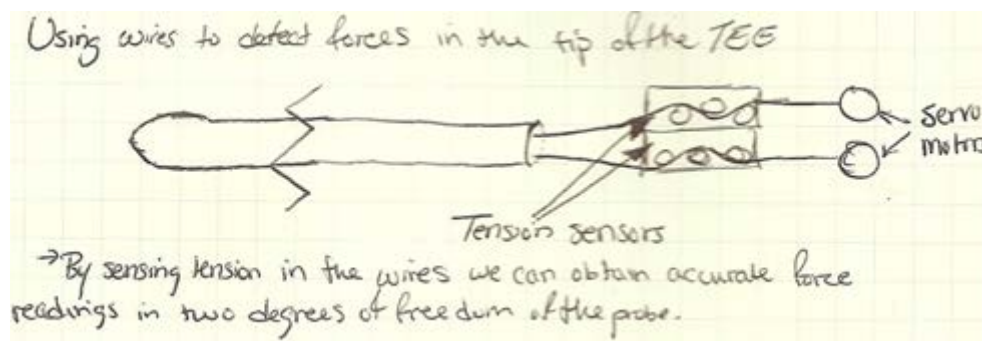 Using wires to detect forces in the tip of the TEE
Servo
motors
Tension sensors
→By sensing tension in the wires we can obtain accurate force
readings in two degrees of freedom of the probe.